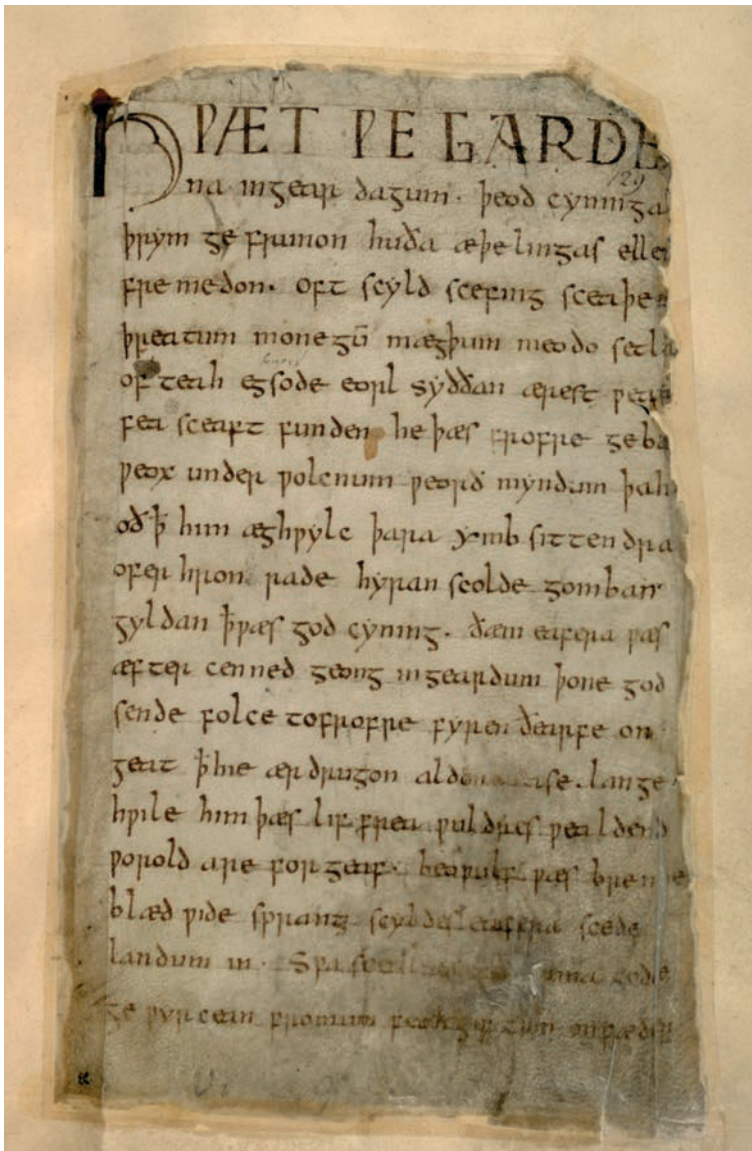 HǷÆT ǷE GARDE
na ingear dagum. þeod cyninga
þrym ge frunon huða æþelingas elle
fremedon. oft scyld scefing sceaþe
þreatum monegū mægþum meodo setla
of teah egsode eorl syððan ærest
fea sceaft funden he þæs frofre geba
ƿeox under ƿolcnum ƿeorð myndum þah
oð þ̄ him æghƿylc þara ymb sittendra
ofer hron rade hyran scolde gomban
gyldan þ̄ ƿæs god cyning. ðæm eafera ƿæs
æfter cenned geong ingeardum þone god
sende folce tofrofre fyren ðearfe on
geat þ̄ hie ær drugon aldor ase. lange
hƿile him þæs lif frea ƿuldres ƿealdend
ƿorold are for geaf. beoƿulf ƿæs breme
blæd ƿide sprang scyldes eafera scede
landum in. Sƿa gode
ge ƿyrcean fromum feoh giftum
129